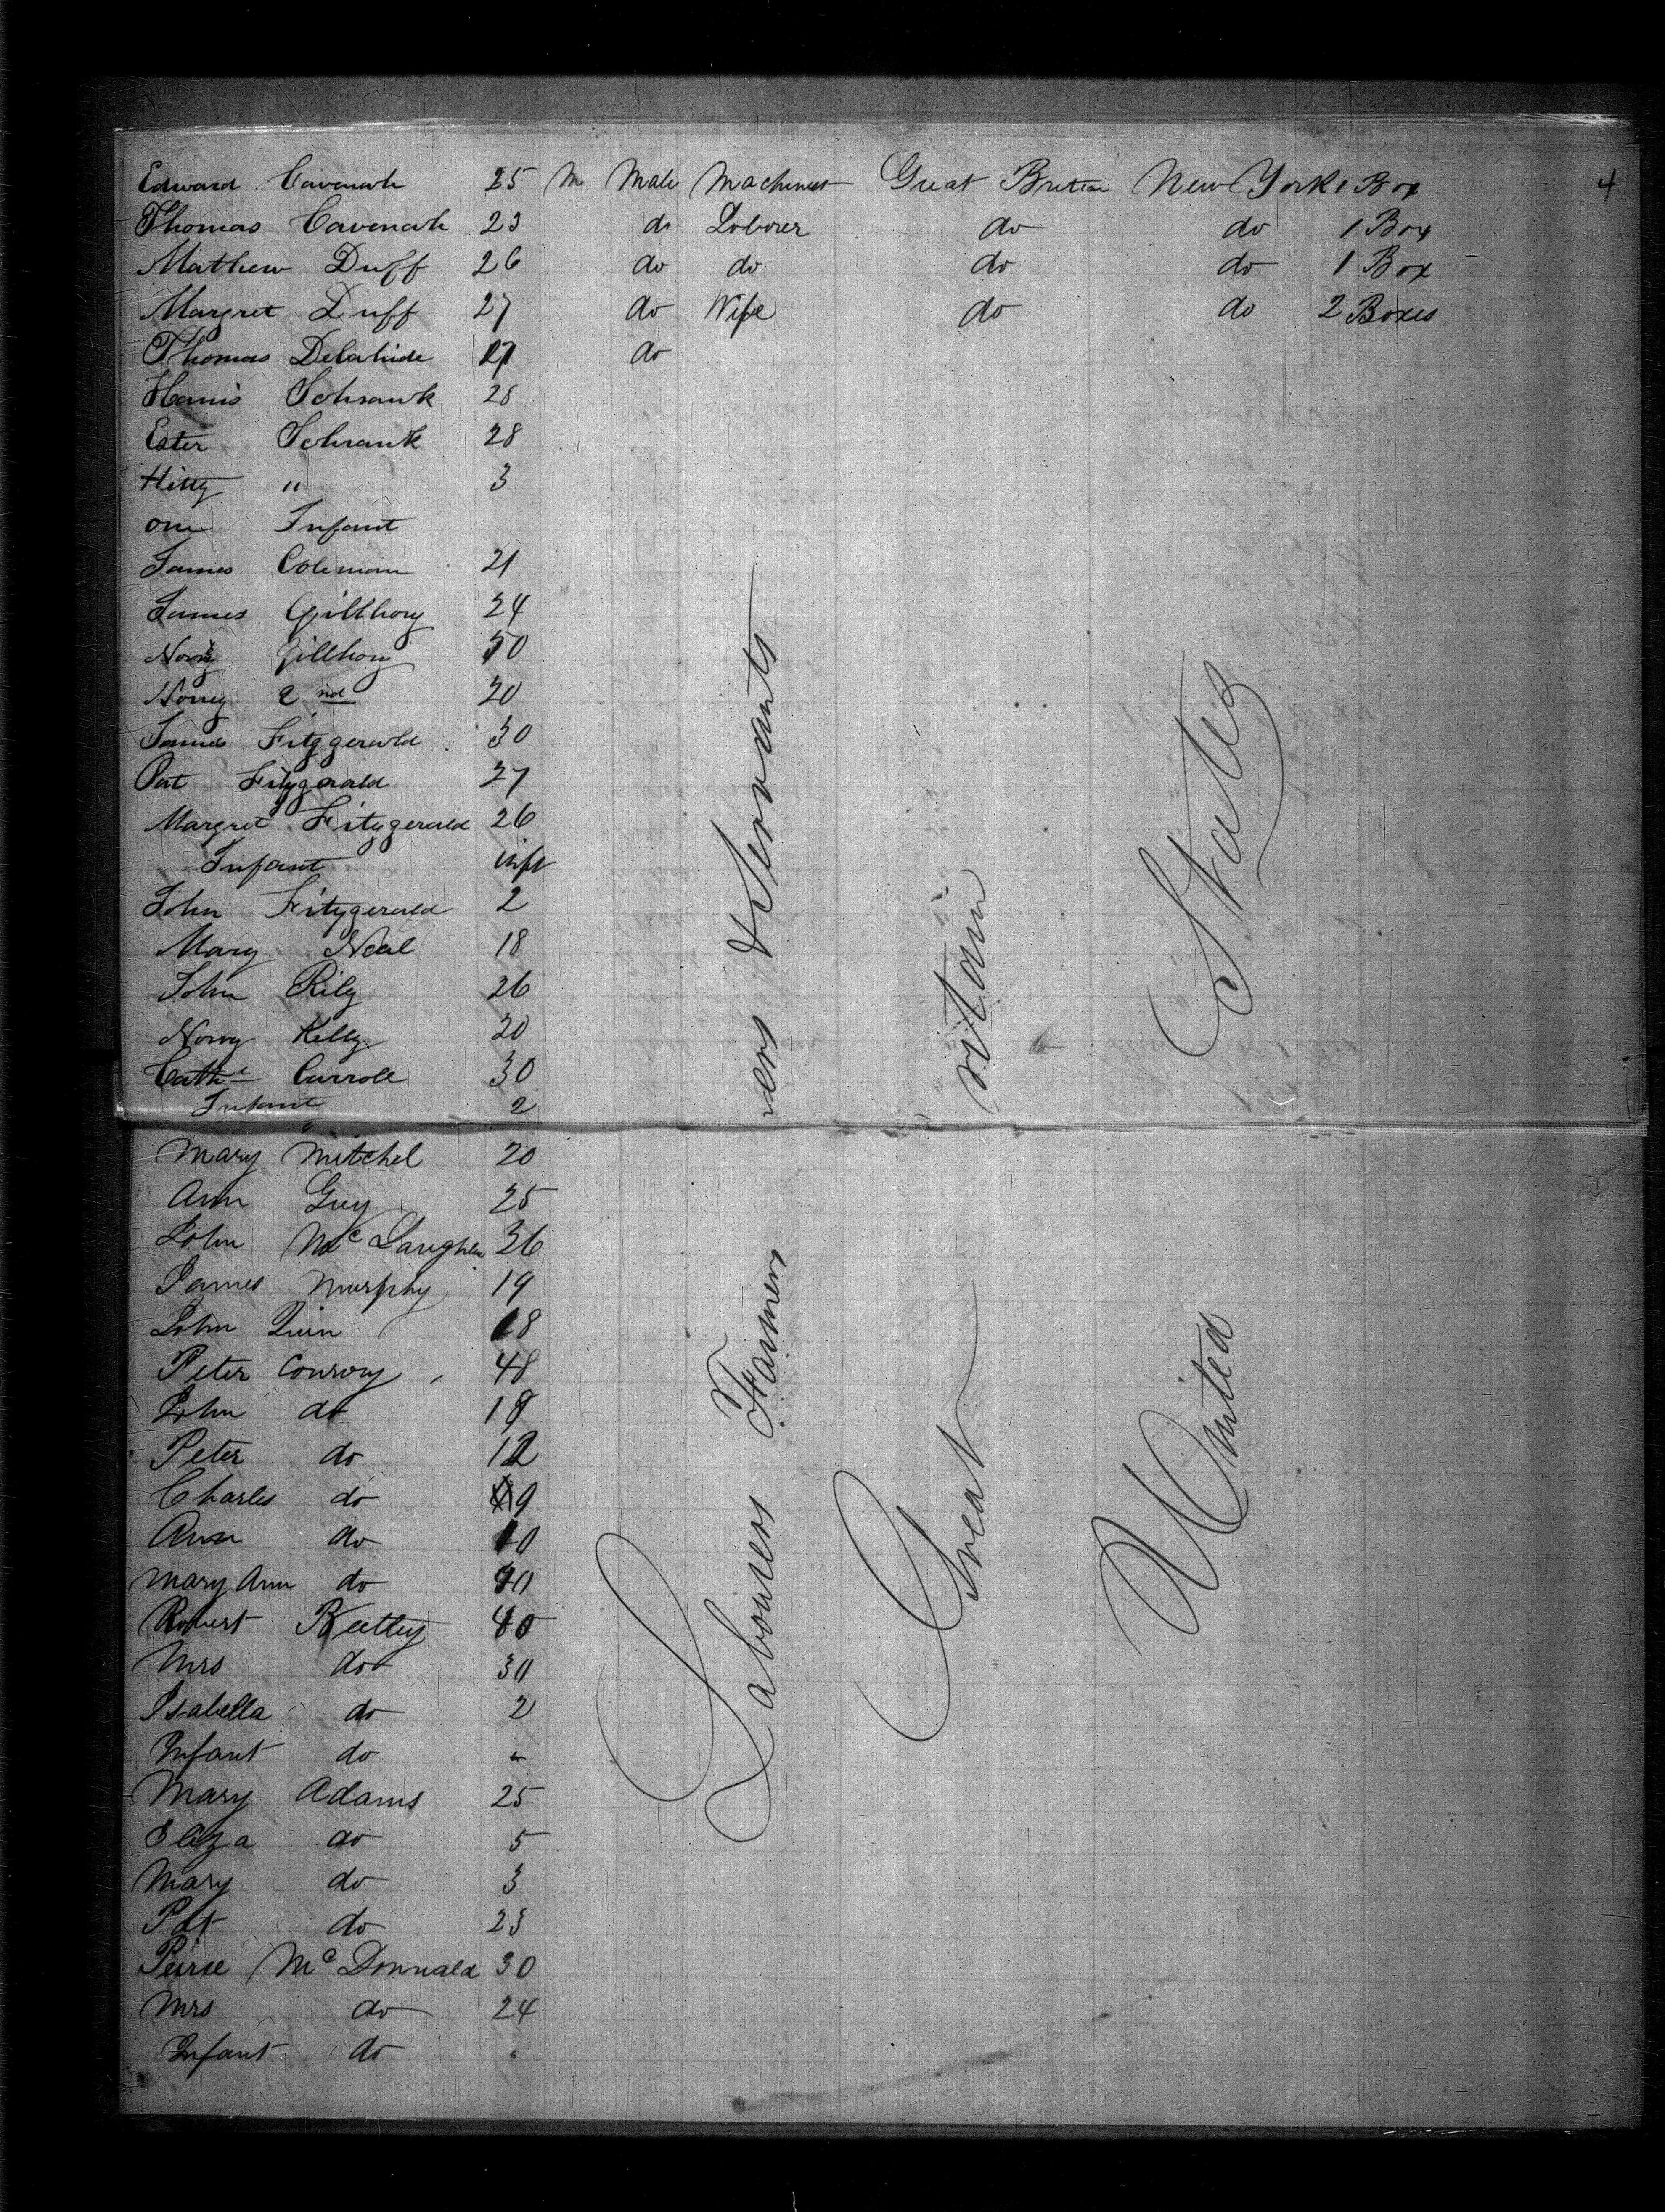 4
Edward Cavenah 25 M Male Machinest Great Bretian New York 1 Box
Thomas Cavenah 23 do Loborer do do 1 Box
Mathew Duff 26 do do do do 1 Box
Margret Duff 27 do Wife do do 2 Boxes
Thomas Delahide 27 do
Harris Schrank 28
Ester Schrank 28
Hitty " 3
one Infant
James Coleman 21
James Gillhory 24
Gillhory 50
Norry 2nd 20
James Fitzgerald 30
Pat Fitzgerald 27
Margret Fitzgerald 26
Infant inft
John Fitzgerald 2
Mary Neal 18
John Rily 26
Norry Kelly 20
Cathe Carroll 30
Infant 2
Mary Mitchel 20
Ann Guy 25
John McLaughlin 36
James Murphy 19
John Quin 18
Peter Conroy 48
John do 19
Peter do 12
Charles do 9
Ann do 10
Mary Ann do
Robert 40
Mrs do 30
Isabella do 2
Infant do "
Mary Adams 25
Eliza do 5
Mary do 3
Pat do 23
Peirse McDonnald 30
Mrs do 24
Infant do "
Labourers Farmers &Servants
Great Britain
United States